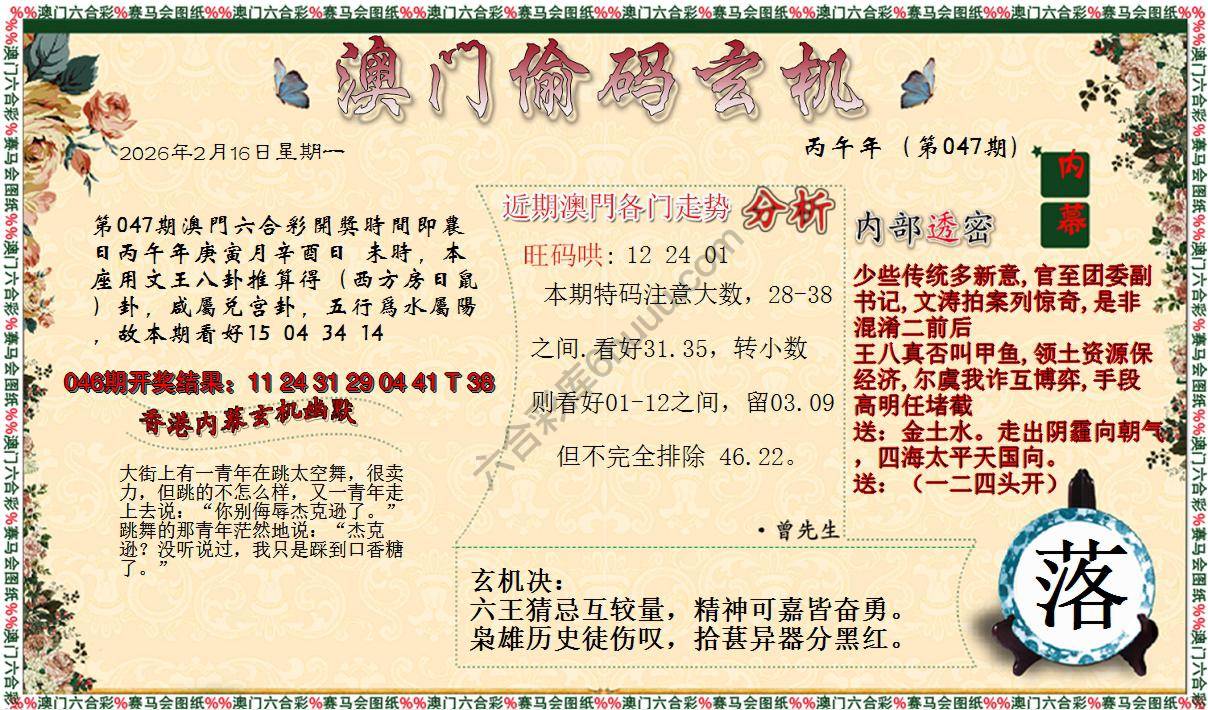 %%澳门六合彩%赛马会图纸%%澳门六合彩%赛马会图纸%%澳门六合彩%赛马会图纸%%澳门六合彩%赛马会图纸%%澳门六合彩%赛马会图纸%%澳门六合彩%赛马会图纸%%
澳门偷码玄机
2026年2月16日星期一
丙午年（第047期）
内
幕
第047期澳門六合彩開獎時間即農
日丙午年庚寅月辛酉日 未時，本
座用文王八卦推算得（西方房日鼠
）卦，咸屬兑宫卦，五行爲水屬陽
，故本期看好15 04 34 14
046期开奖结果：11 24 31 29 04 41 T 38
香港内幕玄机幽默
大街上有一青年在跳太空舞，很卖
力，但跳的不怎么样，又一青年走
上去说：“你别侮辱杰克逊了。”
跳舞的那青年茫然地说：“杰克
逊？没听说过，我只是踩到口香糖
了。”
近期澳門各门走势 分析
旺码哄: 12 24 01
本期特码注意大数，28-38
之间.看好31.35，转小数
则看好01-12之间，留03.09
但不完全排除 46.22。
·曾先生
六合彩库6huuu.com
内部透密
少些传统多新意,官至团委副
书记,文涛拍案列惊奇,是非
混淆二前后
王八真否叫甲鱼,领土资源保
经济,尔虞我诈互博弈,手段
高明任堵截
送：金土水。走出阴霾向朝气
，四海太平天国向。
送：（一二四头开）
玄机决：
六王猜忌互较量，精神可嘉皆奋勇。
枭雄历史徒伤叹，拾葚异器分黑红。
落
%%澳门六合彩%赛马会图纸%%澳门六合彩%赛马会图纸%%澳门六合彩%赛马会图纸%%澳门六合彩%赛马会图纸%%澳门六合彩%赛马会图纸%%澳门六合彩%赛马会图纸%%